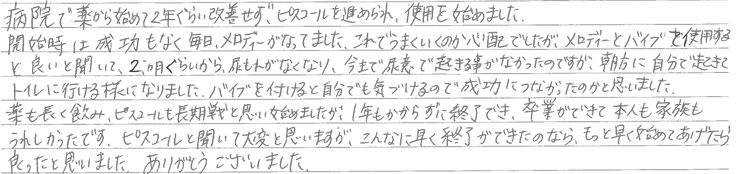 病院で薬から始めて2年ぐらい改善せず、ピスコールを進められ、使用を始めました。
開始時は成功もなく毎日、メロディーがなってました、これでうまくいくのか心配でしたが、メロディーとバイブを使用する
と良いと聞いて、2ヵ月ぐらいから、尿もれがなくなり、今まで尿意で起きる事がなかったのですが、朝方に自分で起きて
トイレに行ける様になりました。バイブを付けると自分でも気づけるので成功につながったのかと思いました。
薬も長く飲み、ピスコールも長期戦と思い始めましたが、1年もかからずに終了でき、卒業ができて本人も家族も
うれしかったです。ピスコールと聞いて大変と思いますが、こんなに早く終了ができたのなら、もっと早く始めてあげたら
良ったと思いました。ありがとうございました。